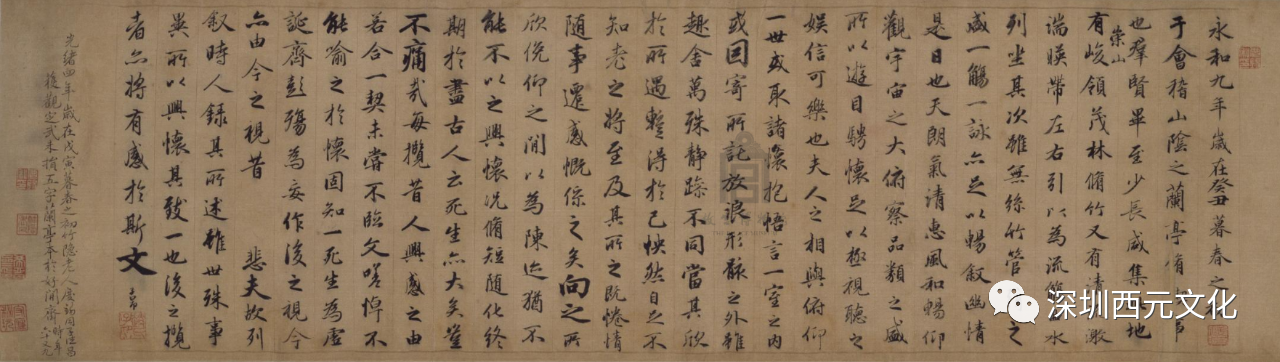 永和九年歲在癸丑暮春之初
于會稽山陰之蘭亭脩禊事
也羣賢畢至少長咸集此地
有崇山峻領茂林脩竹又有清流激
湍暎帶左右引以為流觴曲水
列坐其次雖無絲竹管弦之
盛一觴一詠亦足以暢敘幽情
是日也天朗氣清惠風和暢仰
觀宇宙之大俯察品類之盛
所以遊目騁懷足以極視聽之
娛信可樂也夫人之相與俯仰
一世或取諸懷抱悟言一室之內
或因寄所託放浪形骸之外雖
趣舍萬殊靜躁不同當其欣
於所遇蹔得於己怏然自足不
知老之將至及其所之既惓情
隨事遷感慨係之矣向之所
欣俛仰之閒以為陳迹猶不
能不以之興懷況脩短隨化終
期於盡古人云死生亦大矣豈
不痛哉每攬昔人興感之由
若合一契未嘗不臨文嗟悼不
能喻之於懷固知一死生為虛
誕齊彭殤為妄作後之視今
亦由今之視昔 悲夫故列
敘時人錄其所述雖世殊事
異所以興懷其致一也後之攬
者亦將有感於斯文
光緒四年歲在戊寅暮春之初竹隱老人
後觀定武未損五字蘭亭本於好閒齋時年六十九
深圳西元文化